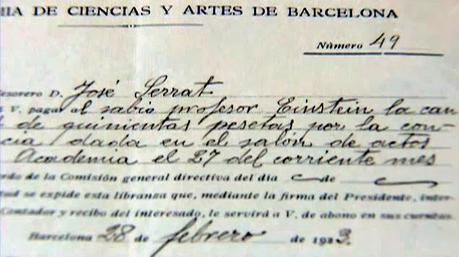 MIA DE CIENCIAS Y ARTES DE BARCELONA
Número 49
esorero D. José Serrat
V. pagar al sabio profesor Einstein la can
de quinientas pesetas por la con
cia dada en el salón de actos
Academia el 27 del corriente mes
rdo de la Comisión general directiva del día de
tud se expide esta libranza que, mediante la firma del Presidente, inter
Contador y recibo del interesado, le servirá a V. de abono en sus cuentas.
Barcelona 28 de febrero de 1923.